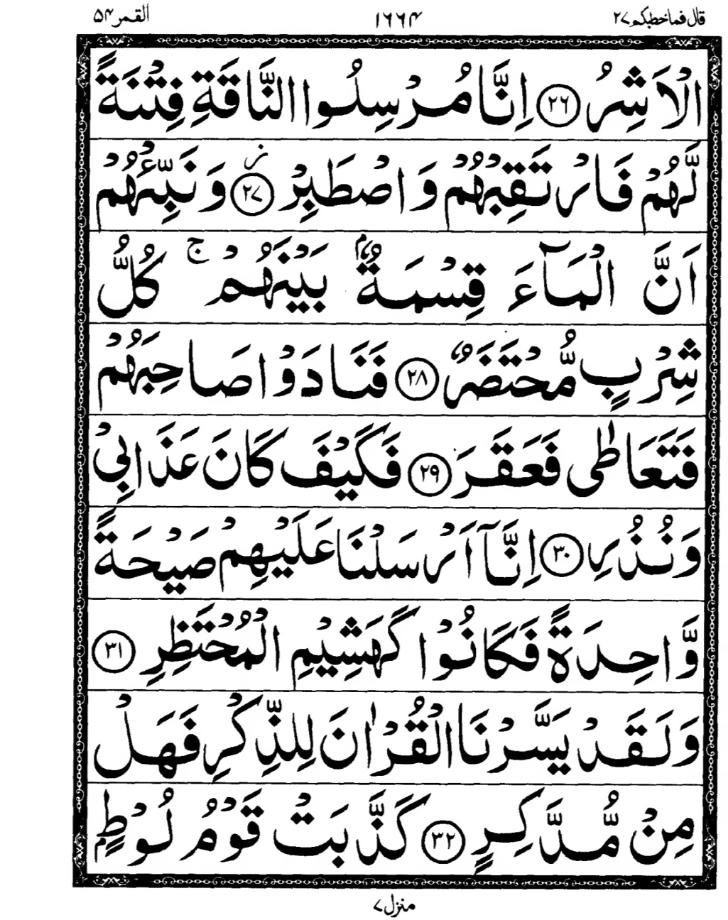 قال فما خطبكم ۲۷ ۱۶۶۴ القمر ۵۴
الْاَشِرُ ﴿۲۶﴾ اِنَّا مُرْسِلُوا النَّاقَةِ فِتْنَةً
لَّهُمْ فَارْتَقِبْهُمْ وَاصْطَبِرْ ﴿۲۷﴾ ز وَنَبِّئْهُمْ
اَنَّ الْمَآءَ قِسْمَةٌۢ بَيْنَهُمْ ۚ كُلُّ
شِرْبٍ مُّحْتَضَرٌ ﴿۲۸﴾ فَنَادَوْا صَاحِبَهُمْ
فَتَعَاطٰى فَعَقَرَ ﴿۲۹﴾ فَكَيْفَ كَانَ عَذَابِيْ
وَنُذُرِ ﴿۳۰﴾ اِنَّآ اَرْسَلْنَا عَلَيْهِمْ صَيْحَةً
وَّاحِدَةً فَكَانُوْا كَهَشِيْمِ الْمُحْتَظِرِ ﴿۳۱﴾
وَلَقَدْ يَسَّرْنَا الْقُرْاٰنَ لِلذِّكْرِ فَهَلْ
مِنْ مُّدَّكِرٍ ﴿۳۲﴾ كَذَّبَتْ قَوْمُ لُوْطٍۭ
منزل ۷